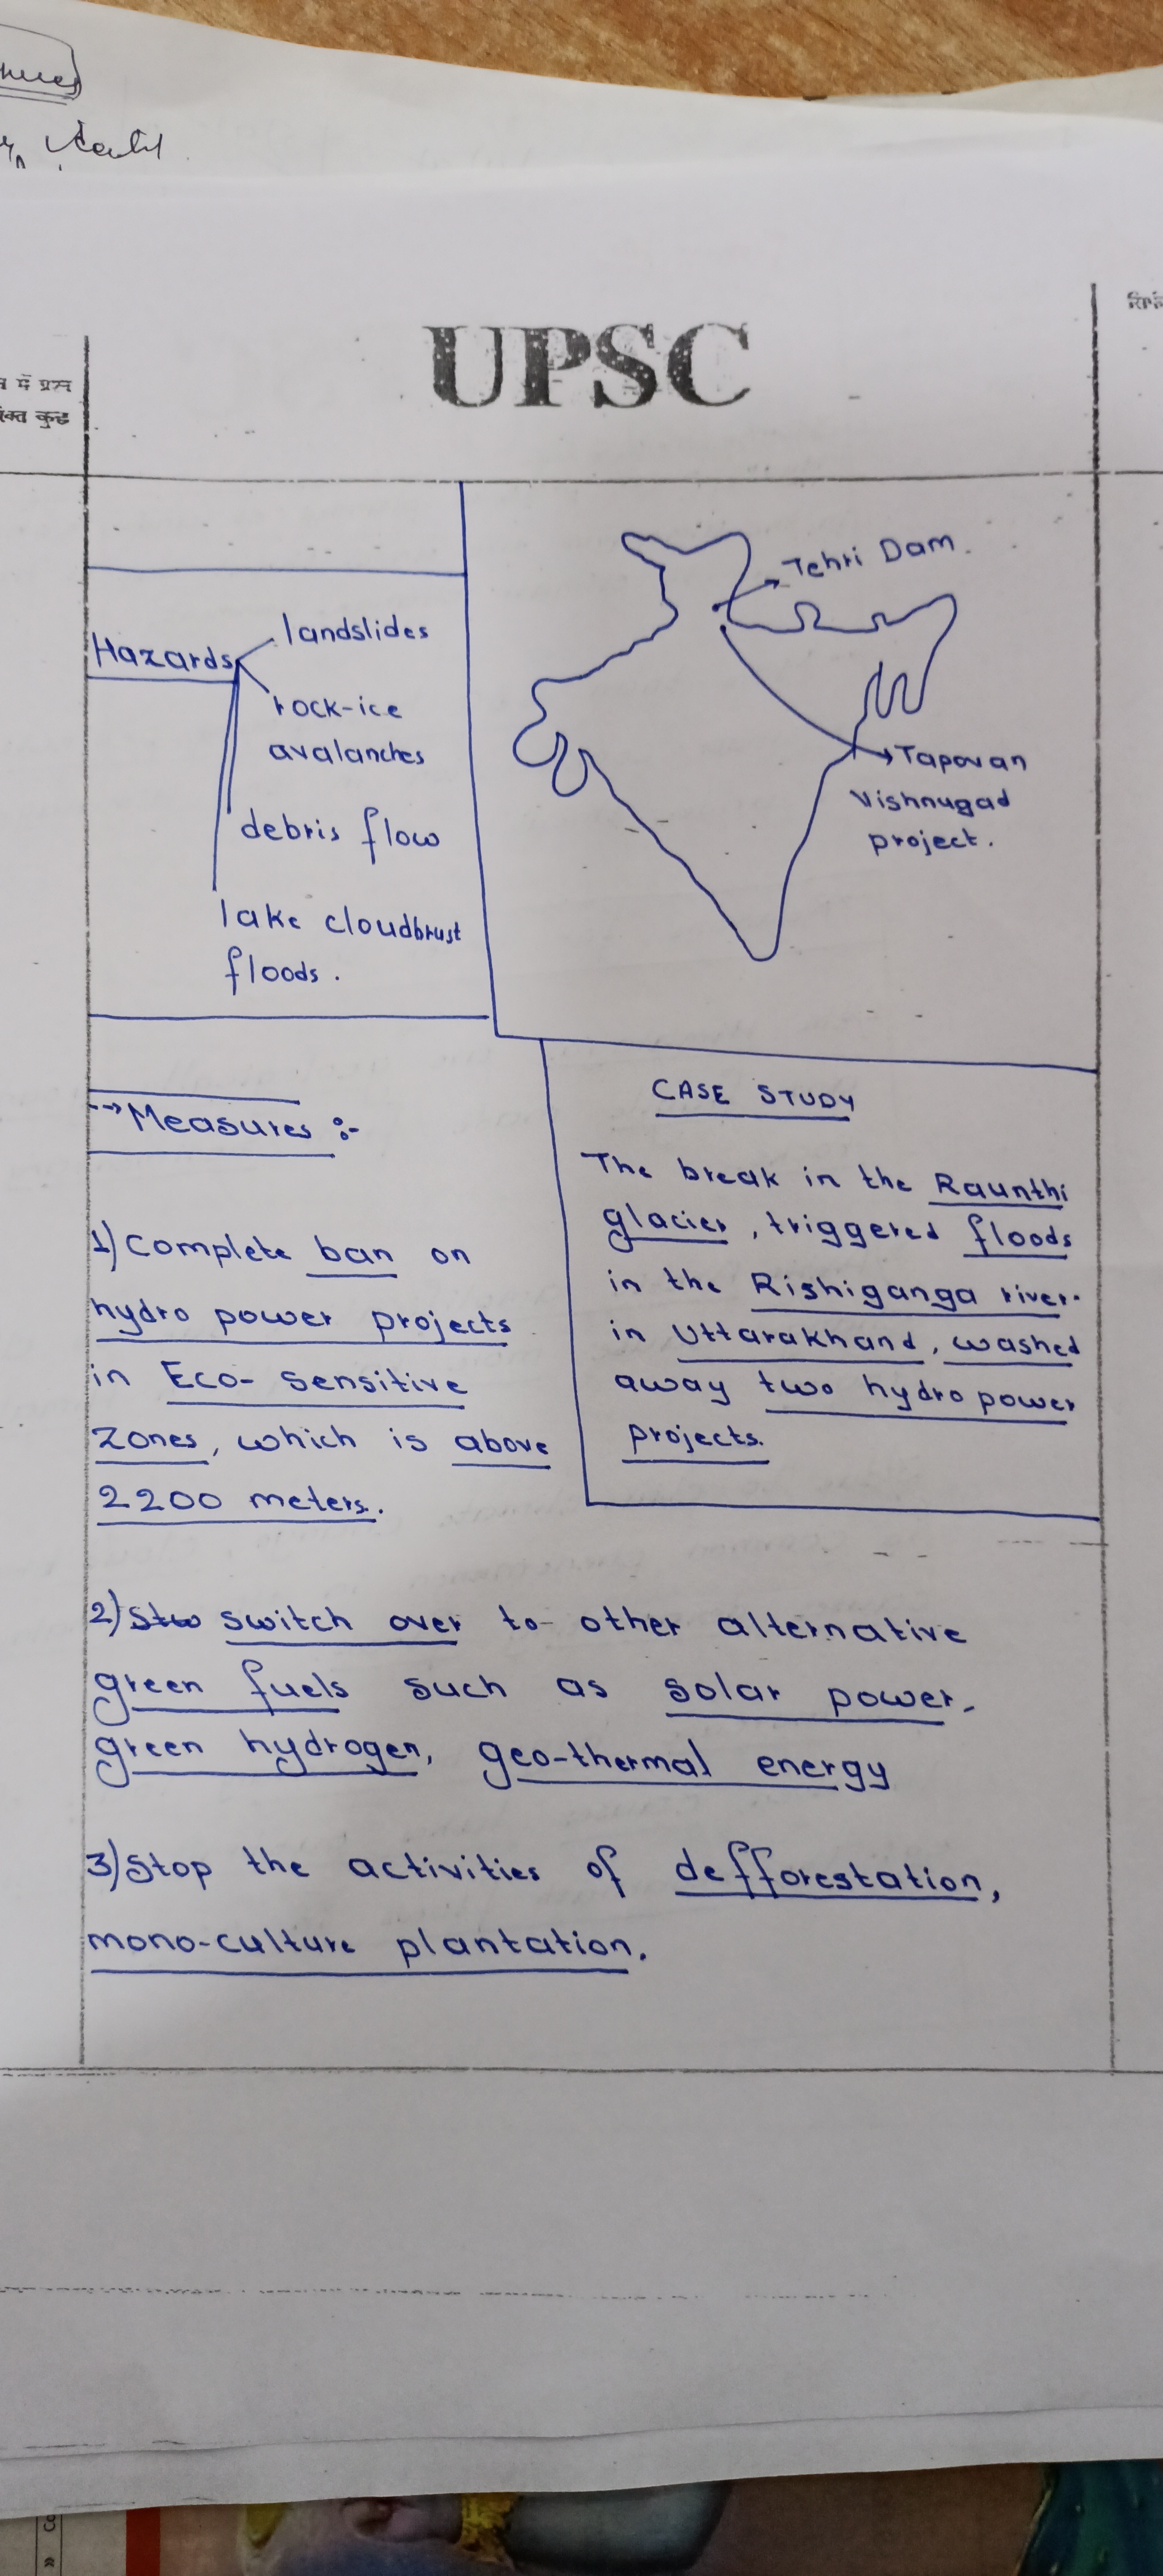 UPSC
में प्रश्न
Hazards
landslides
rock-ice
avalanches
debris flow
lake cloudbrust
floods.
Tehri Dam.
Tapovan
Vishnugad
project.
CASE STUDY
The break in the Raunthi
glacier, triggered floods
in the Rishiganga river.
in Uttarakhand, washed
away two hydro power
projects.
→Measures :-
1) Complete ban on
hydro power projects
in Eco- sensitive
zones, which is above
2200 meters.
2) switch over to other alternative
green fuels such as solar power,
green hydrogen, geo-thermal energy
3) Stop the activities of defforestation,
mono-culture plantation.